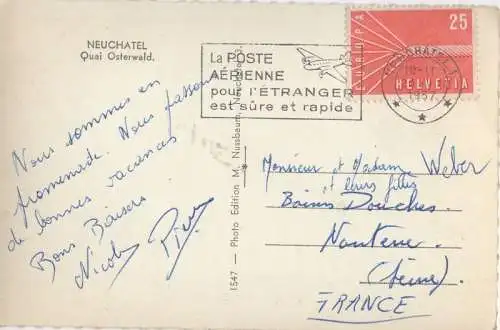 NEUCHATEL
Quai Osterwald.
La POSTE
AÉRIENNE
pour l'ÉTRANGER
est sûre et rapide
EUROPA
25
HELVETIA
NEUCHÂTEL 1
1957
Nous sommes en
promenade. Nous passons
de bonnes vacances
Bons Baisers
Nicole Pierre
1547 - Photo Edition M. Nussbaum, Neuchâtel
Monsieur et Madame Weber
et leurs filles
Bains Douches
Nanterre
(Seine)
FRANCE